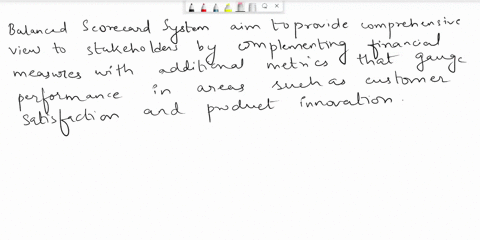 Balanced Scorecard System aim to provide comprehensive
view to stakeholders by complementing financial
measures with additional metrics that gauge
performance in areas such as customer
satisfaction and product innovation.